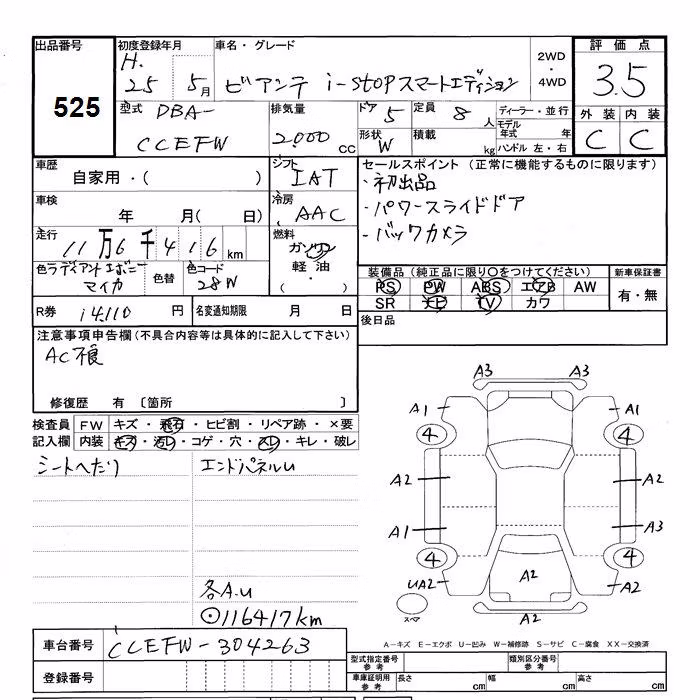 出品番号 初度登録年月 車名・グレード 評価点
H. 25 5月 ビアンテ i-STOPスマートエディション 2WD・4WD 3.5
525
型式 DBA- 排気量 ドア 5 定員 8人 ディーラー・並行 外装 内装
CCEFW 2000 CC 形状 W 積載 kg モデル年式 年 C C
ハンドル 左・右
車歴 シフト セールスポイント (正常に機能するものに限ります)
自家用・( ) IAT ・初出品
車検 冷房 ・パワースライドドア
年 月( 日) AAC ・バックカメラ
走行 燃料
11万6千416km ガソリン
軽・油
・
色 ラディアントエボニーマイカ 色替 色コード 28W
装備品 (純品に限り○をつけてください) 新車保証書
PS PW ABS エアB AW 有・無
SR ナビ TV カワ
R券 14110 円 名変通知期限 月 日 後日品
注意事項申告欄(不具合内容等は具体的に記入して下さい)
AC不良
修復歴 有 〔箇所 〕
検査員 FW キズ・飛石・ヒビ割・リペア跡・×要
記入欄 内装 キズ・汚レ・コゲ・穴・スレ・キレ・破レ
シートへたり エンドパネルU
各A.U
116417km
A3 A3
A1 A1
4 4
A2 A2
A1 A3
4 4
UA2 A2 A2
スペア A2
車台番号 CCEFW-304263
A-キズ E-エクボ U-凹み W-補修跡 S-サビ C-腐食 XX-交換済
登録番号
型式指定番号 参考 類別区分番号 参考
車庫証明用 参考 長さ cm 幅 cm 高さ cm